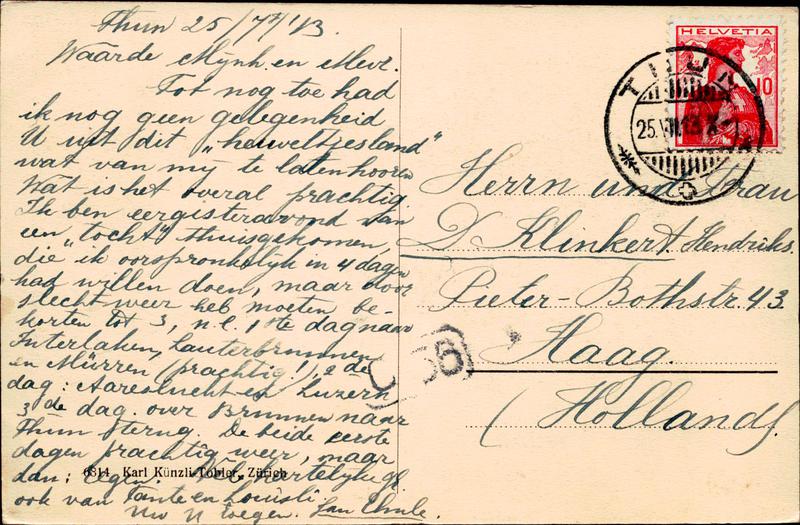 Thun 25/7 '13.
Waarde Mijnh. en Mevr.
Tot nog toe had
ik nog geen gelegenheid
U uit dit "heuveltjesland"
wat van mij te laten hooren
Wat is het overal prachtig.
Ik ben eergisteravond van
een "tocht" thuisgekomen,
die ik oorspronkelijk in 4 dagen
had willen doen, maar door
slecht weer heb moeten be-
korten tot 3, n.l. 1ste dag naar
Interlaken, Lauterbrunnen
en Mürren (prachtig!), 2de
dag: Aareslucht en Luzern
3de dag. over Brunnen naar
Thun terug. De beide eerste
dagen prachtig weer, maar
dan: regen. hartelijke gr.
ook van Tante en
Uw U toegen. Jan
6314 Karl Künzli-Tobler, Zürich
HELVETIA
10
THUN
25.VII.13.X
Herrn und Frau
D. Klinkert. Hendriks.
Pieter-Bothstr. 43
Haag.
(Holland).
56